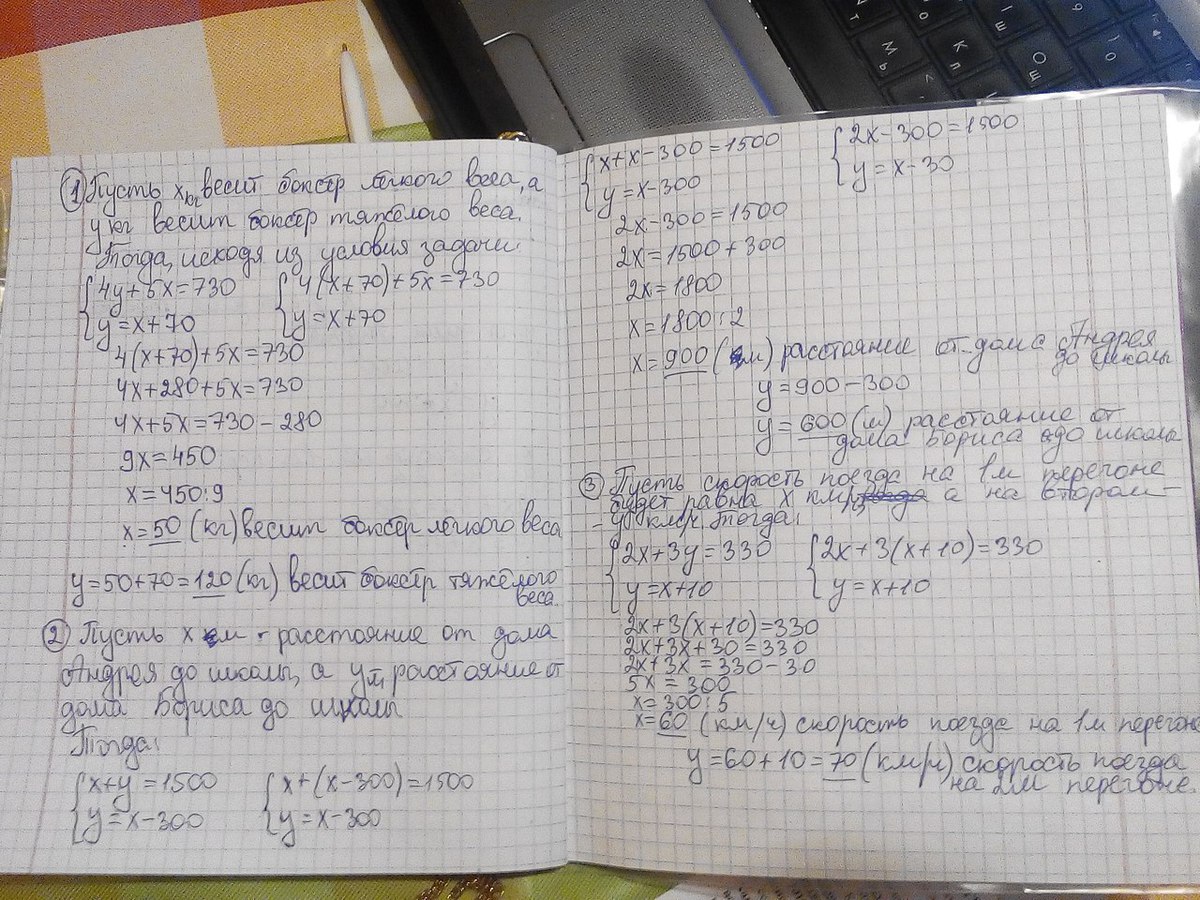 ① Пусть x кг весит боксёр лёгкого веса, а
y кг весит боксёр тяжёлого веса.
Тогда, исходя из условия задачи:
{4y+5x=730 {4(x+70)+5x=730
{y=x+70 {y=x+70
4(x+70)+5x=730
4x+280+5x=730
4x+5x=730-280
9x=450
x=450:9
x=50 (кг) весит боксёр лёгкого веса
y=50+70=120 (кг) весит боксёр тяжёлого
веса.
② Пусть x м - расстояние от дома
Андрея до школы, а y м расстояние от
дома Бориса до школы
Тогда:
{x+y=1500 {x+(x-300)=1500
{y=x-300 {y=x-300
{x+x-300=1500 {2x-300=1500
{y=x-300 {y=x-30
2x-300=1500
2x=1500+300
2x=1800
x=1800:2
x=900 (м) расстояние от дома Андрея
до школы
y=900-300
y=600 (м) расстояние от
дома Бориса до школы
③ Пусть скорость поезда на 1м перегоне
будет равна x км/ч а на втором -
- y км/ч. Тогда:
{2x+3y=330 {2x+3(x+10)=330
{y=x+10 {y=x+10
2x+3(x+10)=330
2x+3x+30=330
2x+3x=330-30
5x=300
x=300:5
x=60 (км/ч) скорость поезда на 1м перегоне
y=60+10=70 (км/ч) скорость поезда
на 2м перегоне.